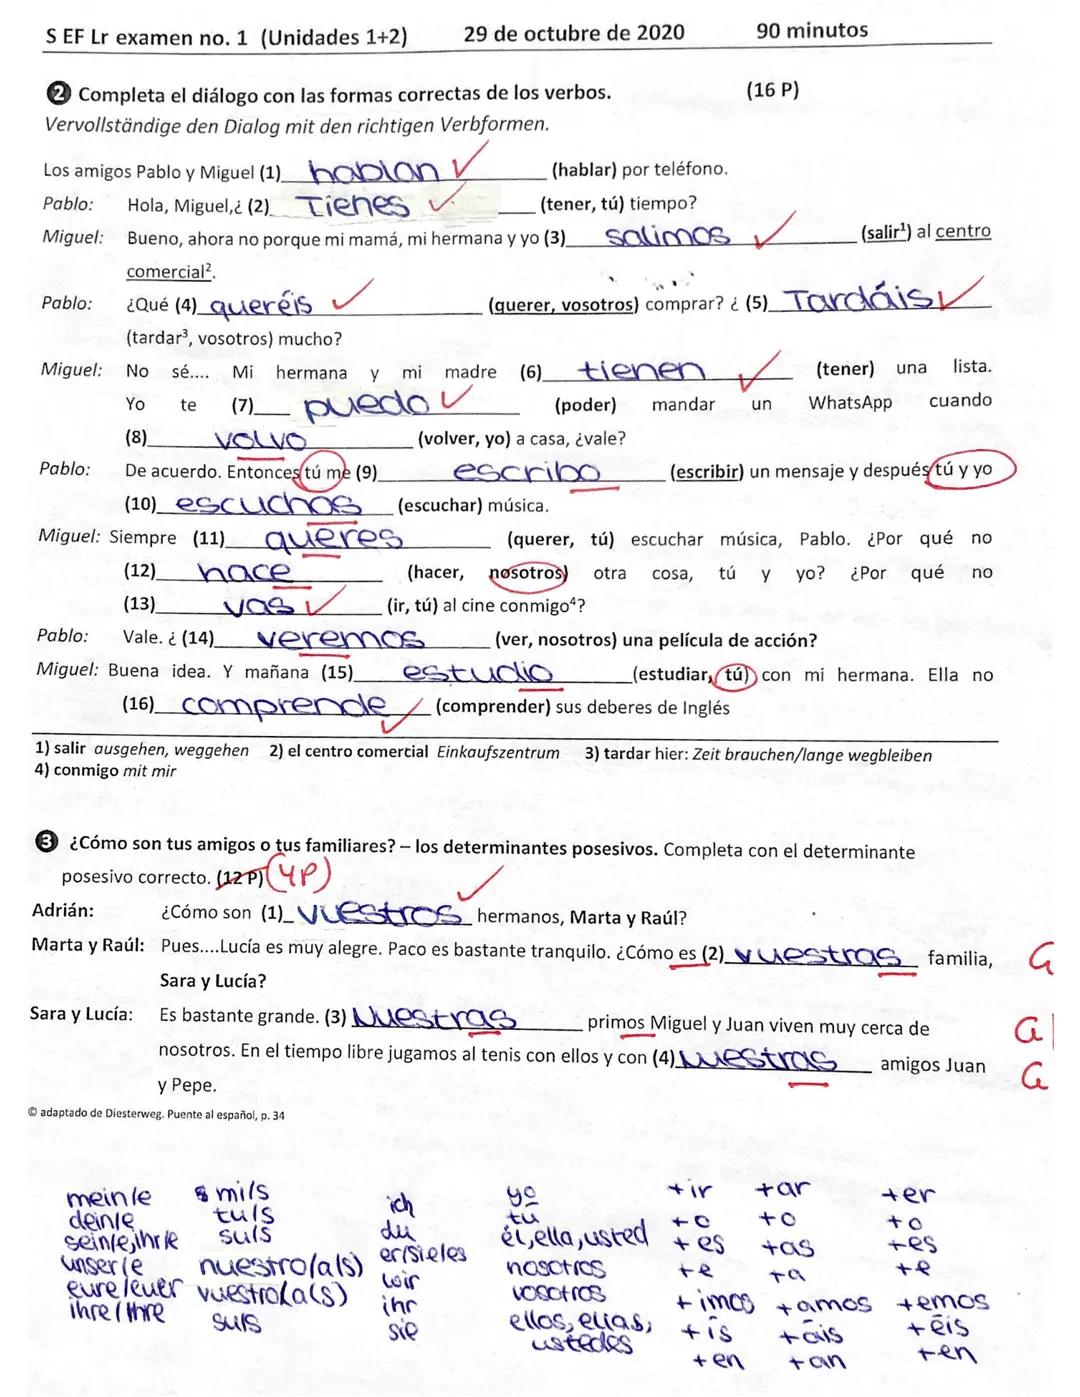 S EF Lr examen no. 1 (Unidades 1+2) 29 de octubre de 2020 90 minutos
2 Completa el diálogo con las formas correctas de los verbos. (16 P)
Vervollständige den Dialog mit den richtigen Verbformen.
Los amigos Pablo y Miguel (1) hablan (hablar) por teléfono.
Pablo: Hola, Miguel,¿ (2) Tienes (tener, tú) tiempo?
Miguel: Bueno, ahora no porque mi mamá, mi hermana y yo (3) salimos (salir¹) al centro
comercial².
Pablo: ¿Qué (4) queréis (querer, vosotros) comprar? ¿ (5) Tardáis
(tardar³, vosotros) mucho?
Miguel: No sé.... Mi hermana y mi madre (6) tienen (tener) una lista.
Yo te (7) puedo (poder) mandar un WhatsApp cuando
(8) volvo (volver, yo) a casa, ¿vale?
Pablo: De acuerdo. Entonces tú me (9) escribo (escribir) un mensaje y después tú y yo
(10) escuchas (escuchar) música.
Miguel: Siempre (11) queres (querer, tú) escuchar música, Pablo. ¿Por qué no
(12) hace (hacer, nosotros) otra cosa, tú y yo? ¿Por qué no
(13) vas (ir, tú) al cine conmigo⁴?
Pablo: Vale. ¿ (14) veremos (ver, nosotros) una película de acción?
Miguel: Buena idea. Y mañana (15) estudio (estudiar, tú) con mi hermana. Ella no
(16) comprende (comprender) sus deberes de Inglés
1) salir ausgehen, weggehen 2) el centro comercial Einkaufszentrum 3) tardar hier: Zeit brauchen/lange wegbleiben
4) conmigo mit mir
3 ¿Cómo son tus amigos o tus familiares? – los determinantes posesivos. Completa con el determinante
posesivo correcto. (12 P) (4P)
Adrián: ¿Cómo son (1) vuestros hermanos, Marta y Raúl?
Marta y Raúl: Pues....Lucía es muy alegre. Paco es bastante tranquilo. ¿Cómo es (2) vuestras familia, G
Sara y Lucía?
Sara y Lucía: Es bastante grande. (3) Nuestras primos Miguel y Juan viven muy cerca de G
nosotros. En el tiempo libre jugamos al tenis con ellos y con (4) nuestras amigos Juan G
y Pepe.
© adaptado de Diesterweg. Puente al español, p. 34
mein/e mi/s ich yo +ir +ar +er
dein/e tu/s du tú +o +o +o
sein/e,ihr/e su/s er/sie/es él,ella,usted +es +as +es
unser/e nuestro/a(s) wir nosotros +e +a +e
eure/euer vuestro/a(s) ihr vosotros +imos +amos +emos
ihre/Ihre su/s sie ellos, ellas, ustedes +ís +áis +éis
+en +an +en